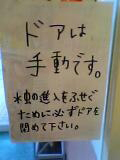 ドアは
手動です。
※虫の進入をふせぐ
ために必ずドアを
閉めて下さい。